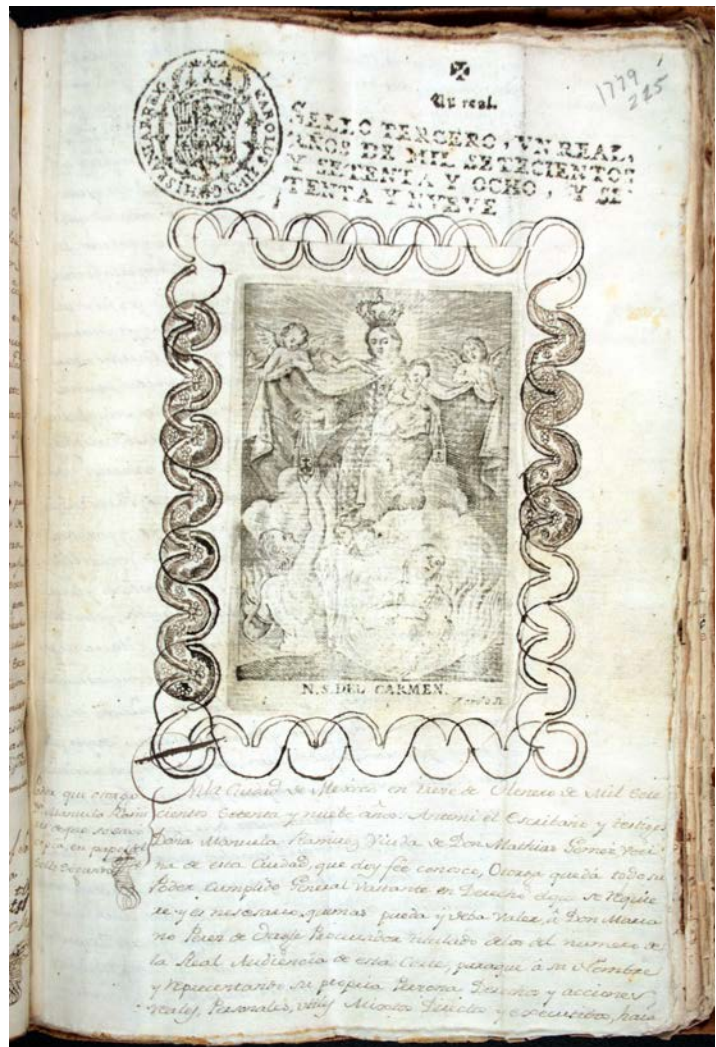 Un real.
1779
225
CAROLUS III D G HISPANIAR REX
SELLO TERCERO, VN REAL,
AÑOS DE MIL SETECIENTOS
Y SETENTA Y OCHO, Y SE-
TENTA Y NVEVE
N. S. DEL CARMEN.
Poder que otorgó
Manuela Ramir
en papel del
Sello segundo
Ciudad de Mexico en de Henero de Mil Sete
cientos Setenta y nuebe años: Antemi el Escribano y testigos
Doña Manuela Ramirez Viuda de Don Mathias Gomez Veci
na de esta Ciudad, que doy feé conosco, Otorga que dá todo su
Poder Cumplido General Vastante en Derecho el que se requie
re y es nesesario, que mas pueda y deba Valer, á Don Maria
no Perez de Procurador titulado de los del numero de
la Real Audiencia de esta Corte, para que á su Nombre
y representando su propria Persona Derechos y acciones
reales, Personales, Mixtos Directos y executibos, haia